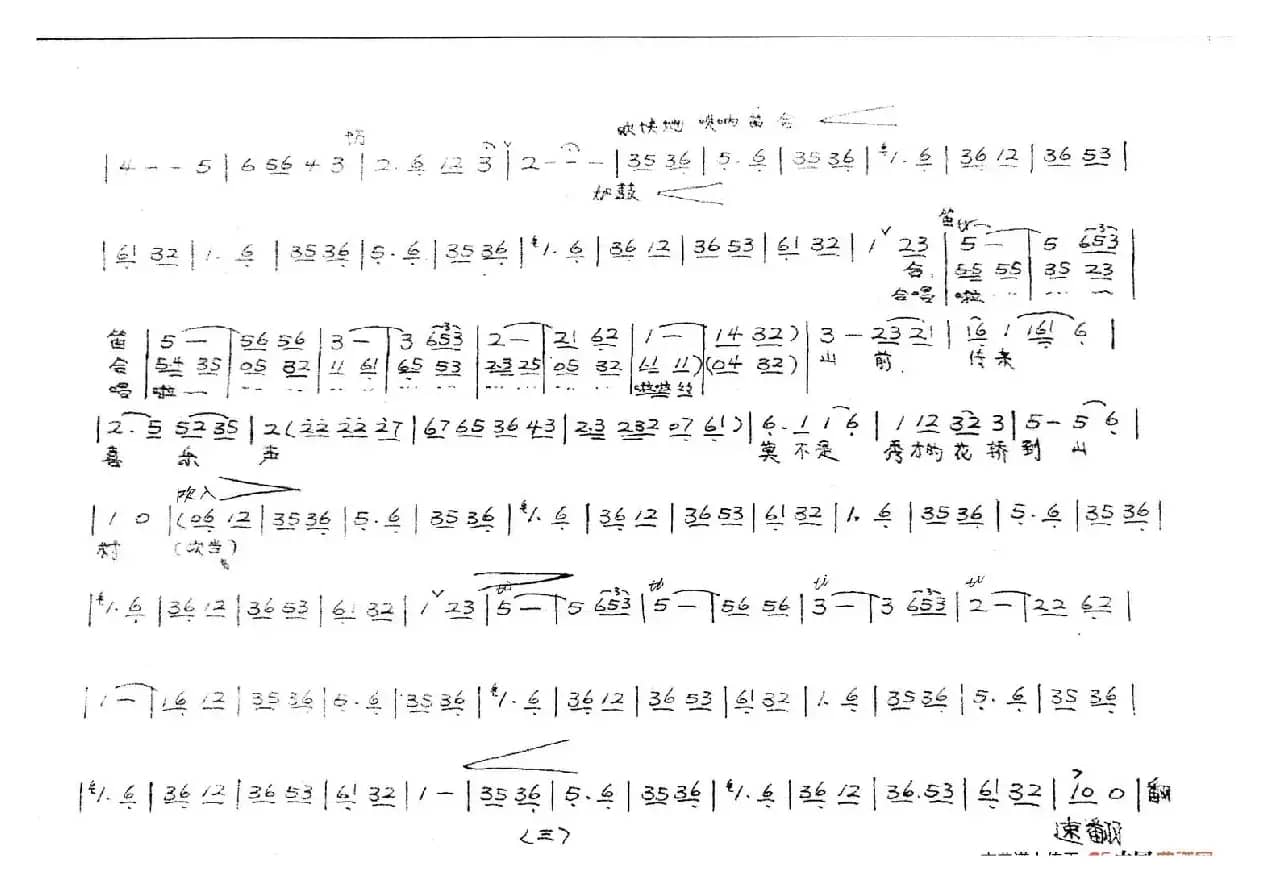 欢快地 唢呐笛合
| 4 - - 5 | 6 56 4 3 | 2. 6 12 3 ∨ | 2 - - - | 35 36 | 5. 6 | 35 36 | 1. 6 | 36 12 | 36 53 |
加鼓
| 61 32 | 1. 6 | 35 36 | 5. 6 | 35 36 | 1. 6 | 36 12 | 36 53 | 61 32 | 1 ∨ 23 | 5 - | 5 653 |
笛
合 | 55 55 | 35 23 |
合唱 啦 ··· ···
笛 | 5 - | 56 56 | 3 - | 3 653 | 2 - | 21 62 | 1 - | 14 32 ) | 3 - 23 21 | 16 1 161 6 |
合 | 54 35 | 05 32 | 11 61 | 65 53 | 23 25 | 05 32 | 11 11 ) ( 04 32 ) | 山 前 传来
唱 啦
| 2. 5 52 35 | 2 ( 22 22 27 | 67 65 36 43 | 23 232 07 61 ) | 6. 1 1 6 | 1 12 32 3 | 5 - 5 6 |
喜 乐 声 莫不是 秀才的花轿到山
吹入
| 1 0 | ( 06 12 | 35 36 | 5. 6 | 35 36 | 1. 6 | 36 12 | 36 53 | 61 32 | 1. 6 | 35 36 | 5. 6 | 35 36 |
村
| 1. 6 | 36 12 | 36 53 | 61 32 | 1 ∨ 23 | 5 - | 5 653 | 5 - | 56 56 | 3 - | 3 653 | 2 - | 22 62 |
| 1 - | 16 12 | 35 36 | 5. 6 | 35 36 | 1. 6 | 36 12 | 36 53 | 61 32 | 1. 6 | 35 36 | 5. 6 | 35 36 |
| 1. 6 | 36 12 | 36 53 | 61 32 | 1 - | 35 36 | 5. 6 | 35 36 | 1. 6 | 36 12 | 36. 53 | 61 32 | 10 0 | 翻
(三) 速翻